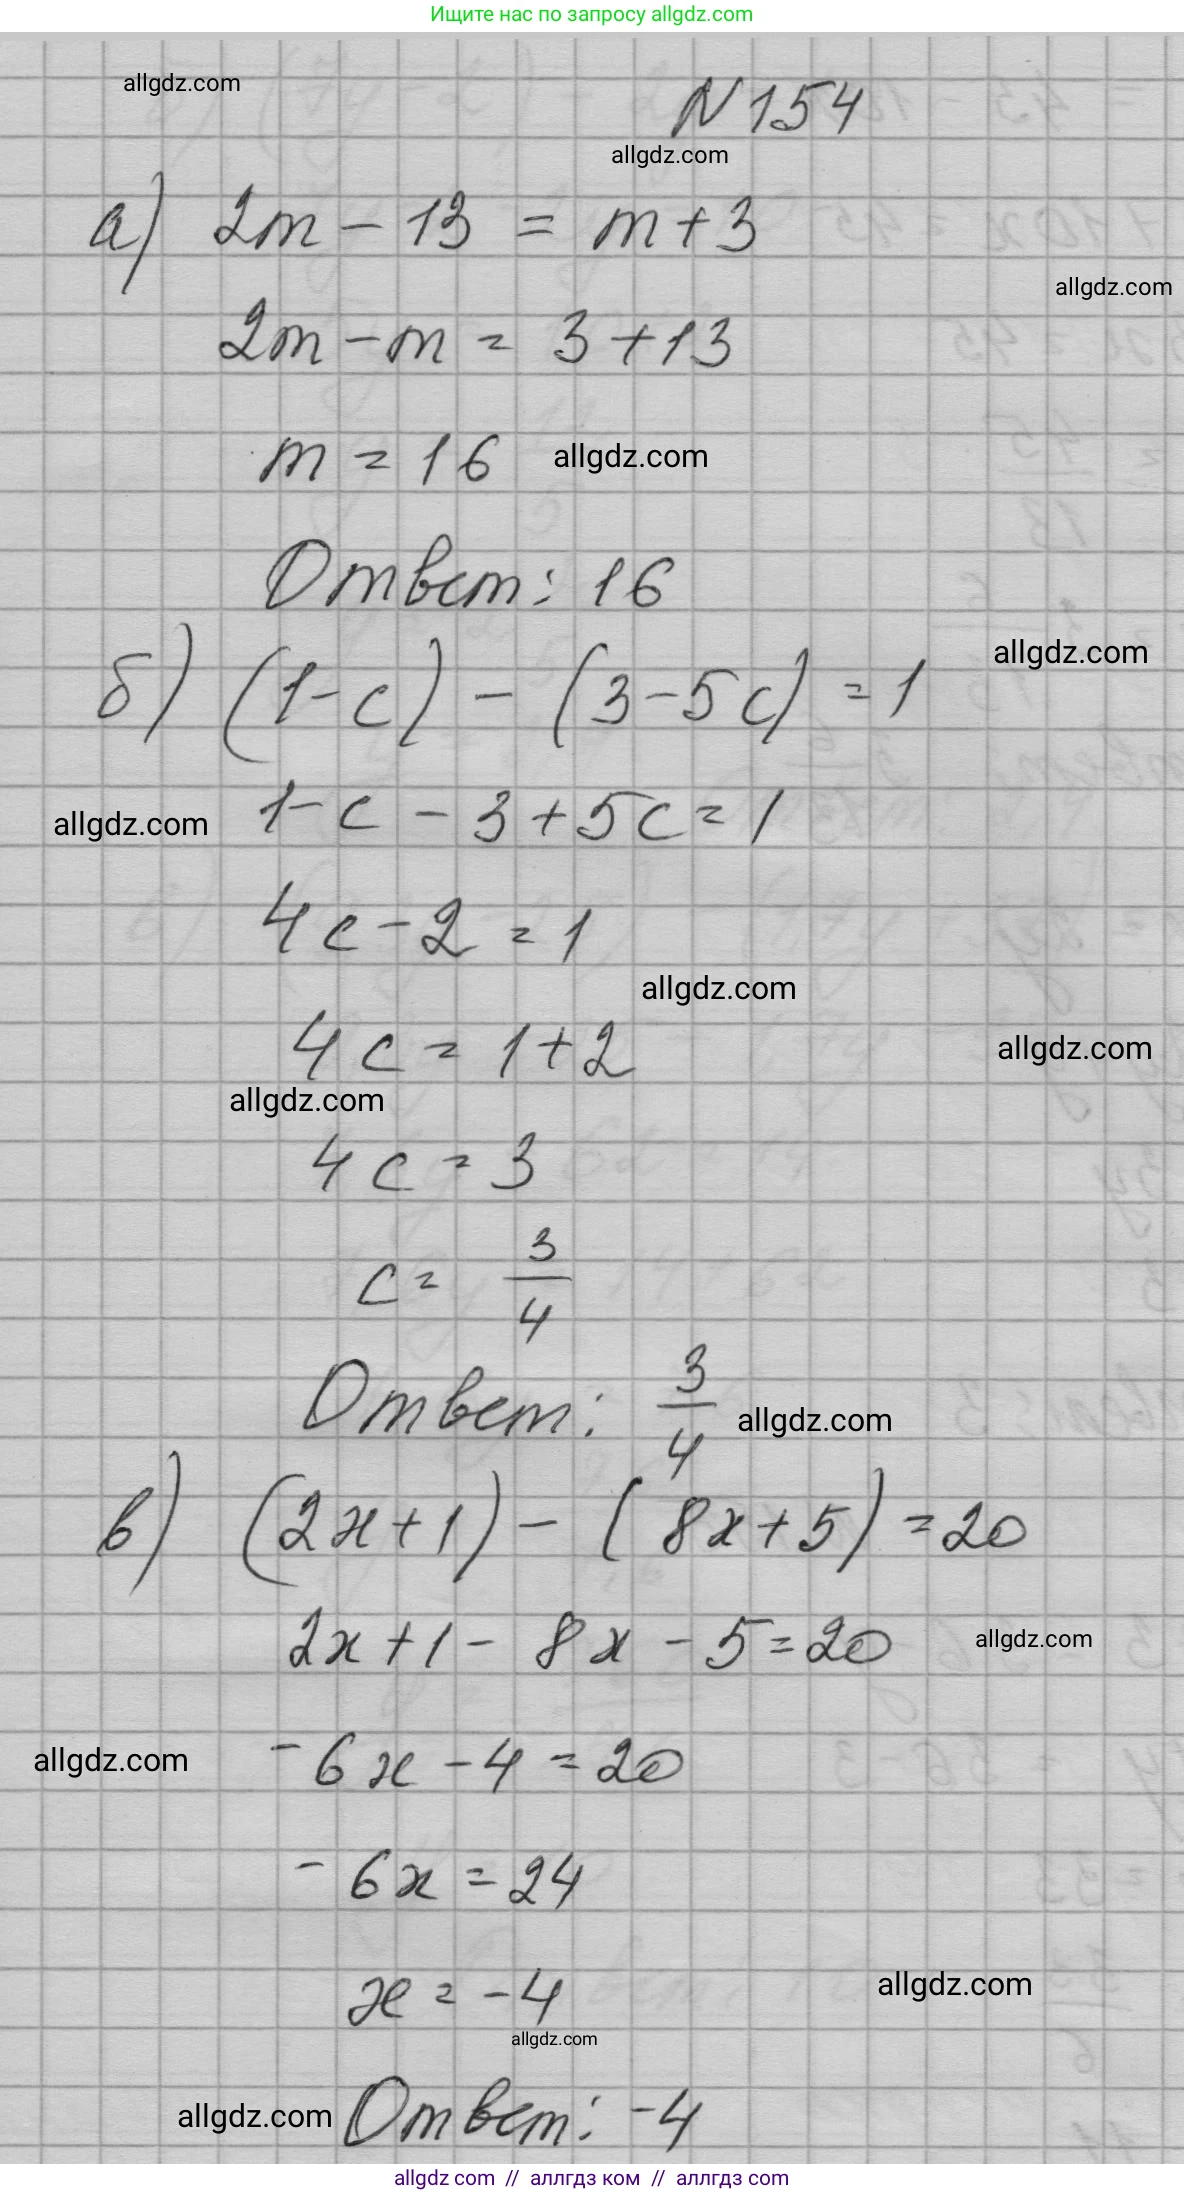 Ищите нас по запросу allgdz.com
allgdz.com
N 154
allgdz.com
а) 2m - 13 = m + 3
allgdz.com
2m - m = 3 + 13
m = 16
allgdz.com
Ответ: 16
б) (1 - c) - (3 - 5c) = 1
allgdz.com
1 - c - 3 + 5c = 1
allgdz.com
4c - 2 = 1
allgdz.com
4c = 1 + 2
allgdz.com
allgdz.com
4c = 3
c = 3/4
Ответ: 3/4
allgdz.com
в) (2x + 1) - (8x + 5) = 20
2x + 1 - 8x - 5 = 20
allgdz.com
-6x - 4 = 20
allgdz.com
-6x = 24
x = -4
allgdz.com
allgdz.com
allgdz.com
Ответ: -4
allgdz.com // аллгдз ком // аллгдз com